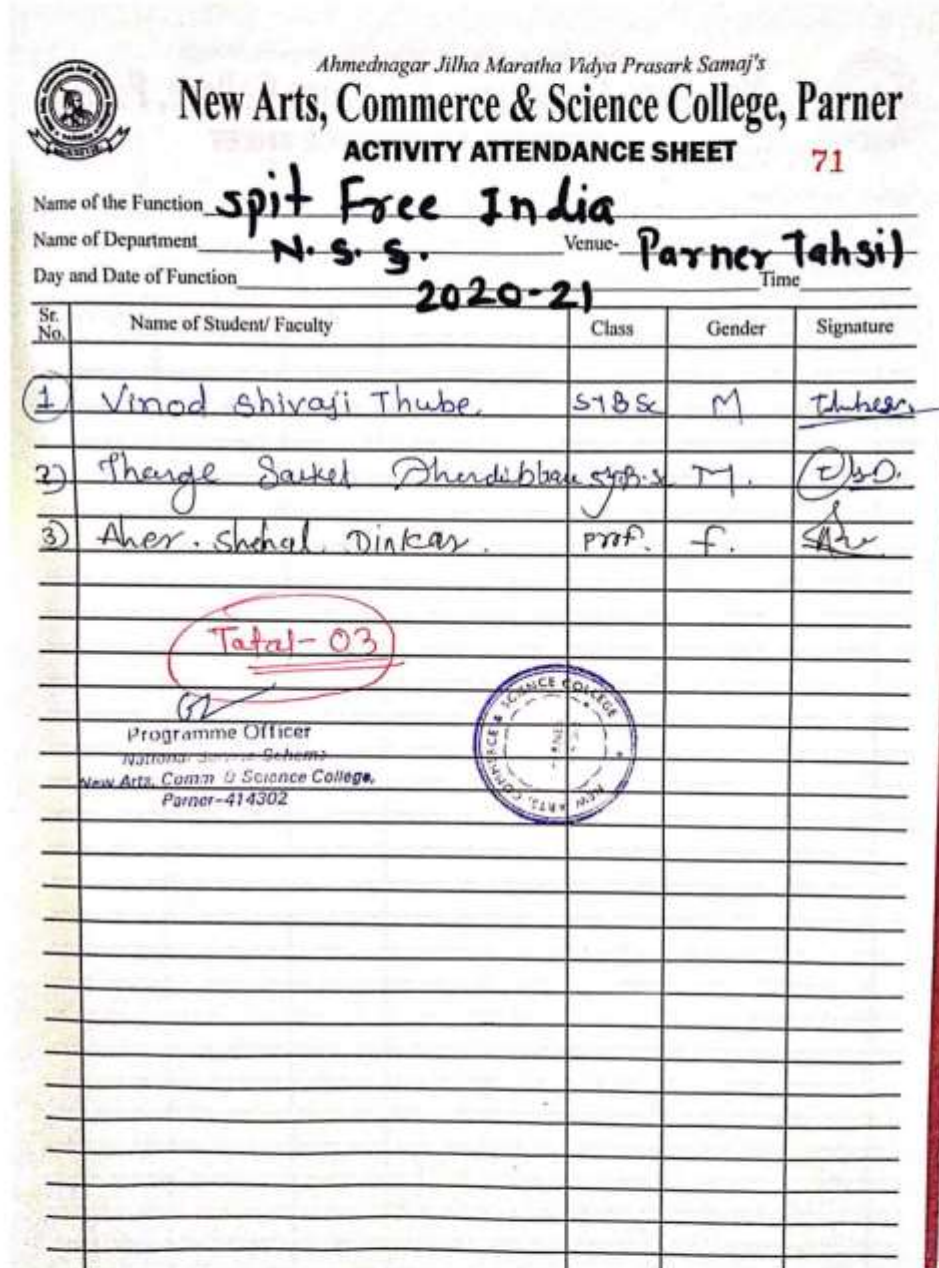 Ahmednagar Jilha Maratha Vidya Prasark Samaj's
New Arts, Commerce & Science College, Parner
ACTIVITY ATTENDANCE SHEET 71
Name of the Function spit Free India
Name of Department N.S.S. Venue- Parner Tahsil
Day and Date of Function 2020-21 Time
Sr. No. Name of Student/ Faculty Class Gender Signature
1 Vinod Shivaji Thube. SYBSc M
2) Tharge M.
3) Aher. Snehal Dinkar. Prof. F.
Total- 03
Programme Officer
National Service Scheme
New Arts, Comm & Science College,
Parner-414302
NEW ARTS, COMMERCE & SCIENCE COLLEGE